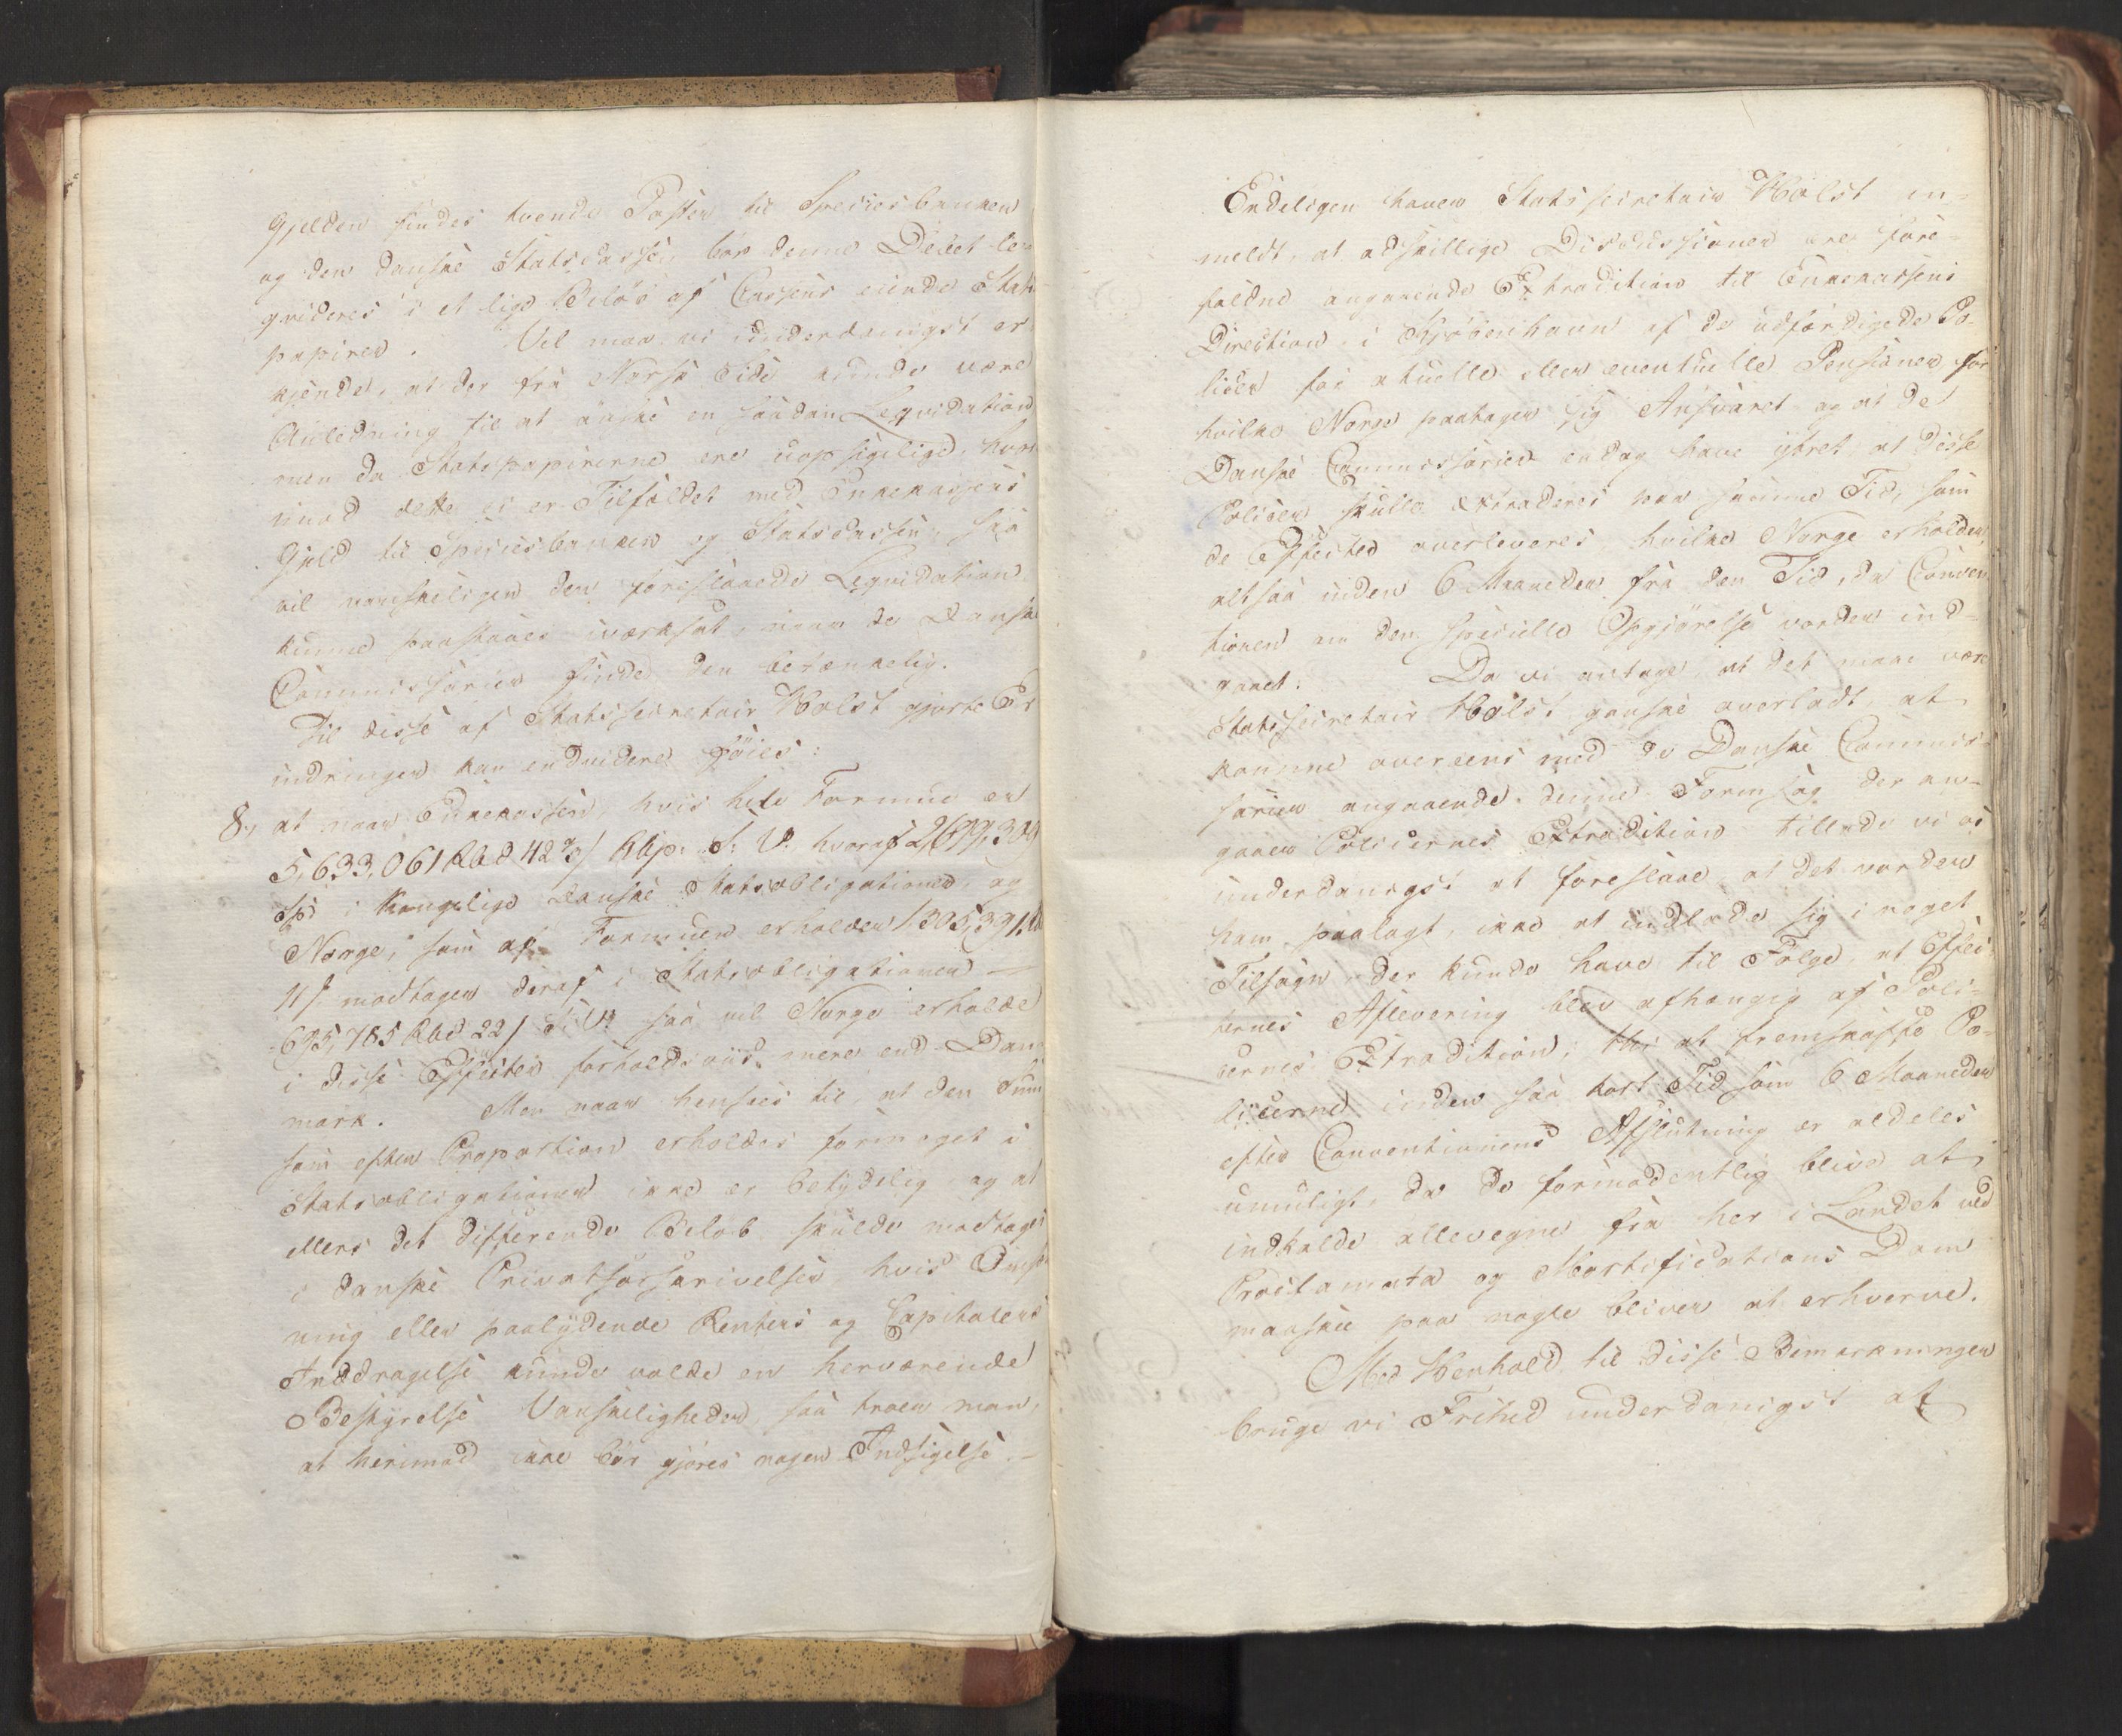 Gjelden findes tvende Poster til Speciesbanken
og den danske Statscasse, bør denne Debet le-
qvideres i et lige Beløb af Cassens eiende Stats-
papirer. Vel maa vi underdanigst er-
kjende, at der fra Norsk Side kunde være
Anledning til at ønske en saadan Leqvidation
men da Statspapirerne ere uopsigelige, hvor-
imod dette ei er Tilfældet med Enkekassens
Gjeld til Speciesbanken og Statscassen, saa
vil vanskeligen den foreslaaede Leqvidation
kunne paastaaes iværksat, naar de Danske
Commissarier finde den betænkelig.
Til disse af Statssecretair Holst gjorte Er-
indringer kan endvidere føies:
8., at naar Enkekassen, hvis hele Formue er
5,633,061 Rbd 42 2/3 / Rbp: S: V. hvoraf 2,699,309
Sp: i Kongelige danske Statsobligationer, og
Norge, som af Formuen erholder 1305,391
11 / modtager deraf i Statsobligationer —
695,785 Rbd 22 / S: V: saa vil Norge erholde
i disse Effecter forholdsviis mere end Dan-
mark. Men naar hensees til, at den Sum
som efter Proportion erholdes formeget i
Statsobligationer ikke er betydelig, og at
ellers det differerende Beløb skulde modtages
i danske Privatforskrivelser, hvis
ning eller paalydende Renters og Capitalens
Inddragelse kunde volde en herværende
Bestyrelse Vanskeligheder, saa troer man,
at herimod ikke bør gjøres nogen Indsigelse. —
Endeligen haver Statssecretair Holst an-
meldt, at adskillige Discussioner ere fore-
faldne angaaende Extradition til Enkekassens
Direction i Kjøbenhavn af de udfærdigede Po-
licer for actuelle eller eventuelle Pensioner for
hvilke Norge paatager sig Ansvaret og at de
Danske Commissarier endog have yttret, at disse
Policer skulle extraderes paa samme Tid, som
de Effecter overleveres, hvilke Norge erholder,
altsaa inden 6 Maaneder fra den Tid, da Conven-
tionen om den specielle Opgjørelse vorder ind-
gaaet. Da vi antage, at det maae være
Statssecretair Holst ganske overladt, at
komme overeens med de Danske Commis-
sarier angaaende denne Formsag der an-
gaaer Policernes Extradition tillade vi os
underdanigst at foreslaae, at det vorder
ham paalagt, ikke at indlade sig i noget
Tilsagn, der kunde have til Følge, at Effec-
ternes Aflevering blev afhængig af Poli-
cernes Extradition; thi at fremskaffe Po-
licerne inden saa kort Tid som 6 Maaneder
efter Conventionens Afslutning er aldeles
umuligt, da de formodentlig blive at
indkalde allevegne fra her i Landet ved
Proclamata og Mortifications Dom
maaskee paa nogle bliver at erhverve.
Med Henhold til disse Bemærkninger
bruge vi Frihed underdanigst at